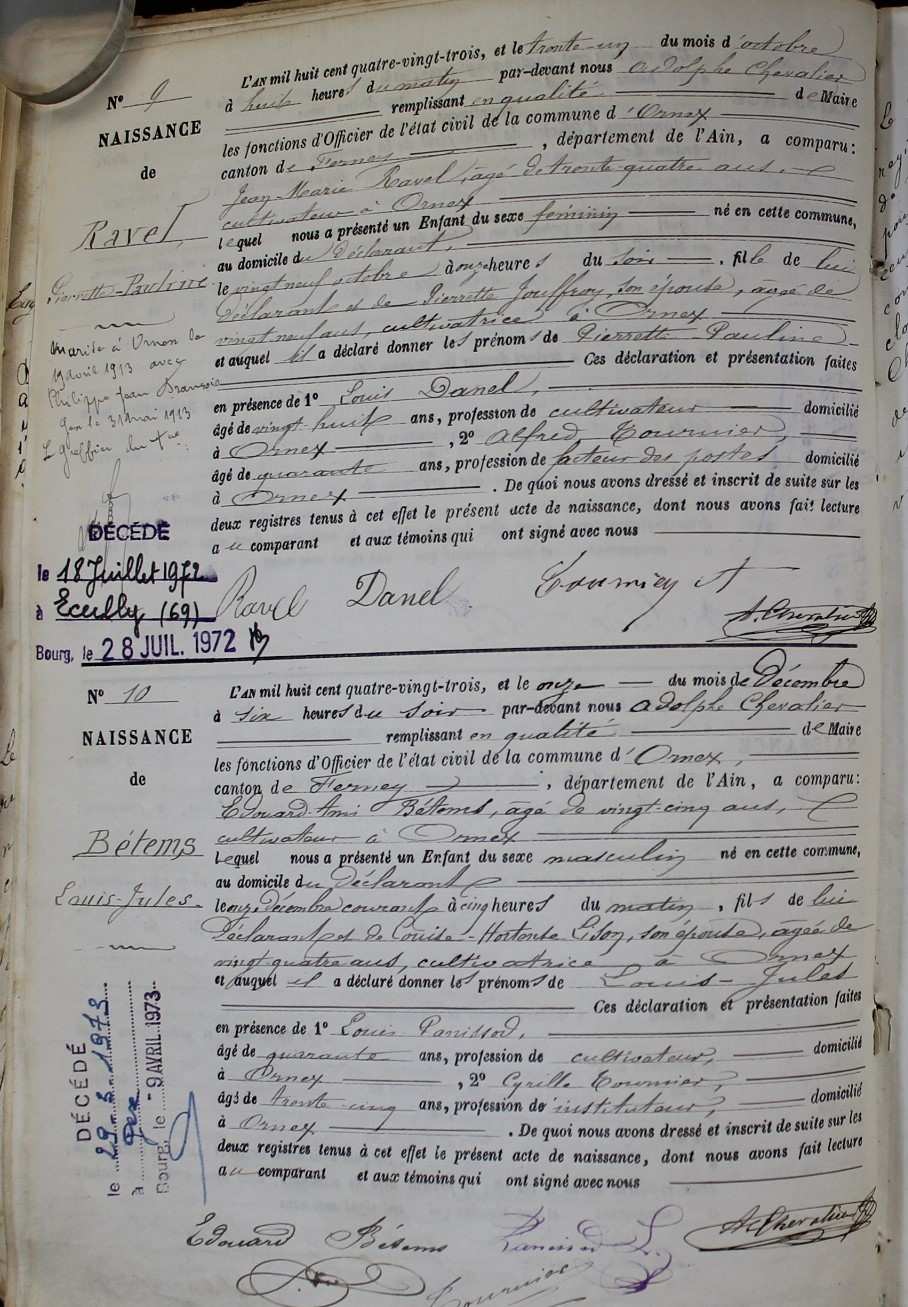 N° 9
NAISSANCE
de
Ravel
Pierrette-Pauline
Mariée à Ornex le
19 avril 1913 avec
Philippe Jean François
Gex le 31 mai 1913
Le Greffier du
DÉCÉDÉ
le 18 Juillet 1972
à Ecully (69)
Bourg, le 28 JUIL. 1972
L'AN mil huit cent quatre-vingt-trois, et le trente-un du mois d'octobre
à huit heures du matin par-devant nous Adolphe Chevalier
remplissant en qualité de Maire
les fonctions d'Officier de l'état civil de la commune d'Ornex,
canton de Ferney, département de l'Ain, a comparu:
Jean-Marie Ravel, agé de trente-quatre ans,
cultivateur à Ornex
Lequel nous a présenté un Enfant du sexe féminin né en cette commune,
au domicile du déclarant,
le vingt neuf octobre à onze heures du soir, fille de lui
déclarant et de Pierrette Jouffroy, son épouse, agée de
vingt neuf ans, cultivatrice à Ornex
et auquel il a déclaré donner les prénoms de Pierrette-Pauline
Ces déclaration et présentation faites
en présence de 1° Louis Danel,
âgé de vingt-huit ans, profession de cultivateur domicilié
à Ornex, 2° Alfred Tournier,
âgé de quarante ans, profession de facteur des postes domicilié
à Ornex. De quoi nous avons dressé et inscrit de suite sur les
deux registres tenus à cet effet le présent acte de naissance, dont nous avons fait lecture
au comparant et aux témoins qui ont signé avec nous
Ravel Danel Tournier A
A. Chevalier
N° 10
NAISSANCE
de
Bétems
Louis-Jules
DÉCÉDÉ
le 29-3-1973
à Gex
Bourg, le -9 AVRIL 1973
L'AN mil huit cent quatre-vingt-trois, et le onze du mois de Décembre
à six heures du soir par-devant nous Adolphe Chevalier
remplissant en qualité de Maire
les fonctions d'Officier de l'état civil de la commune d'Ornex,
canton de Ferney, département de l'Ain, a comparu:
Edouard-Ami Bétems, agé de vingt-cinq ans,
cultivateur à Ornex
Lequel nous a présenté un Enfant du sexe masculin né en cette commune,
au domicile du déclarant
le onze décembre courant à cinq heures du matin, fils de lui
déclarant et de Louise-Hortense, son épouse, agée de
vingt quatre ans, cultivatrice à Ornex
et auquel il a déclaré donner les prénoms de Louis-Jules
Ces déclaration et présentation faites
en présence de 1° Louis Panissod,
âgé de quarante ans, profession de cultivateur, domicilié
à Ornex, 2° Cyrille Tournier,
âgé de trente-cinq ans, profession de instituteur, domicilié
à Ornex. De quoi nous avons dressé et inscrit de suite sur les
deux registres tenus à cet effet le présent acte de naissance, dont nous avons fait lecture
au comparant et aux témoins qui ont signé avec nous
Edouard Bétems Panissod L. A. Chevalier
Tournier